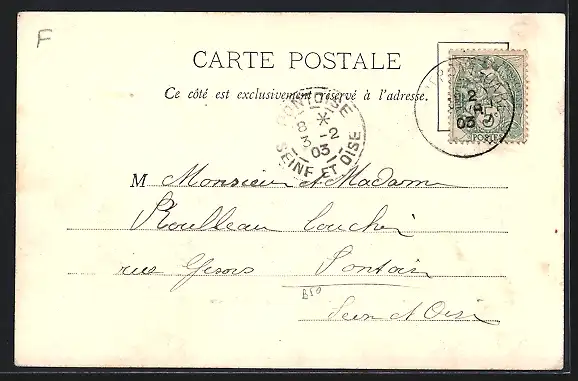 F
CARTE POSTALE
Ce côté est exclusivement réservé à l'adresse.
2
03
5
POSTES
PONTOISE
-2
03
SEINE ET OISE
M Monsieur et Madame
Roulleau
rue Pontoise
B50
Seine et Oise